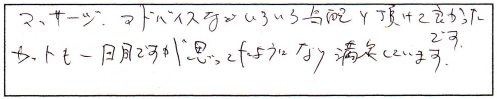 マッサージ、アドバイスなどいろいろ気配り頂けて良かったです。
カットも一目見ですが思ってたようになり満足しています。